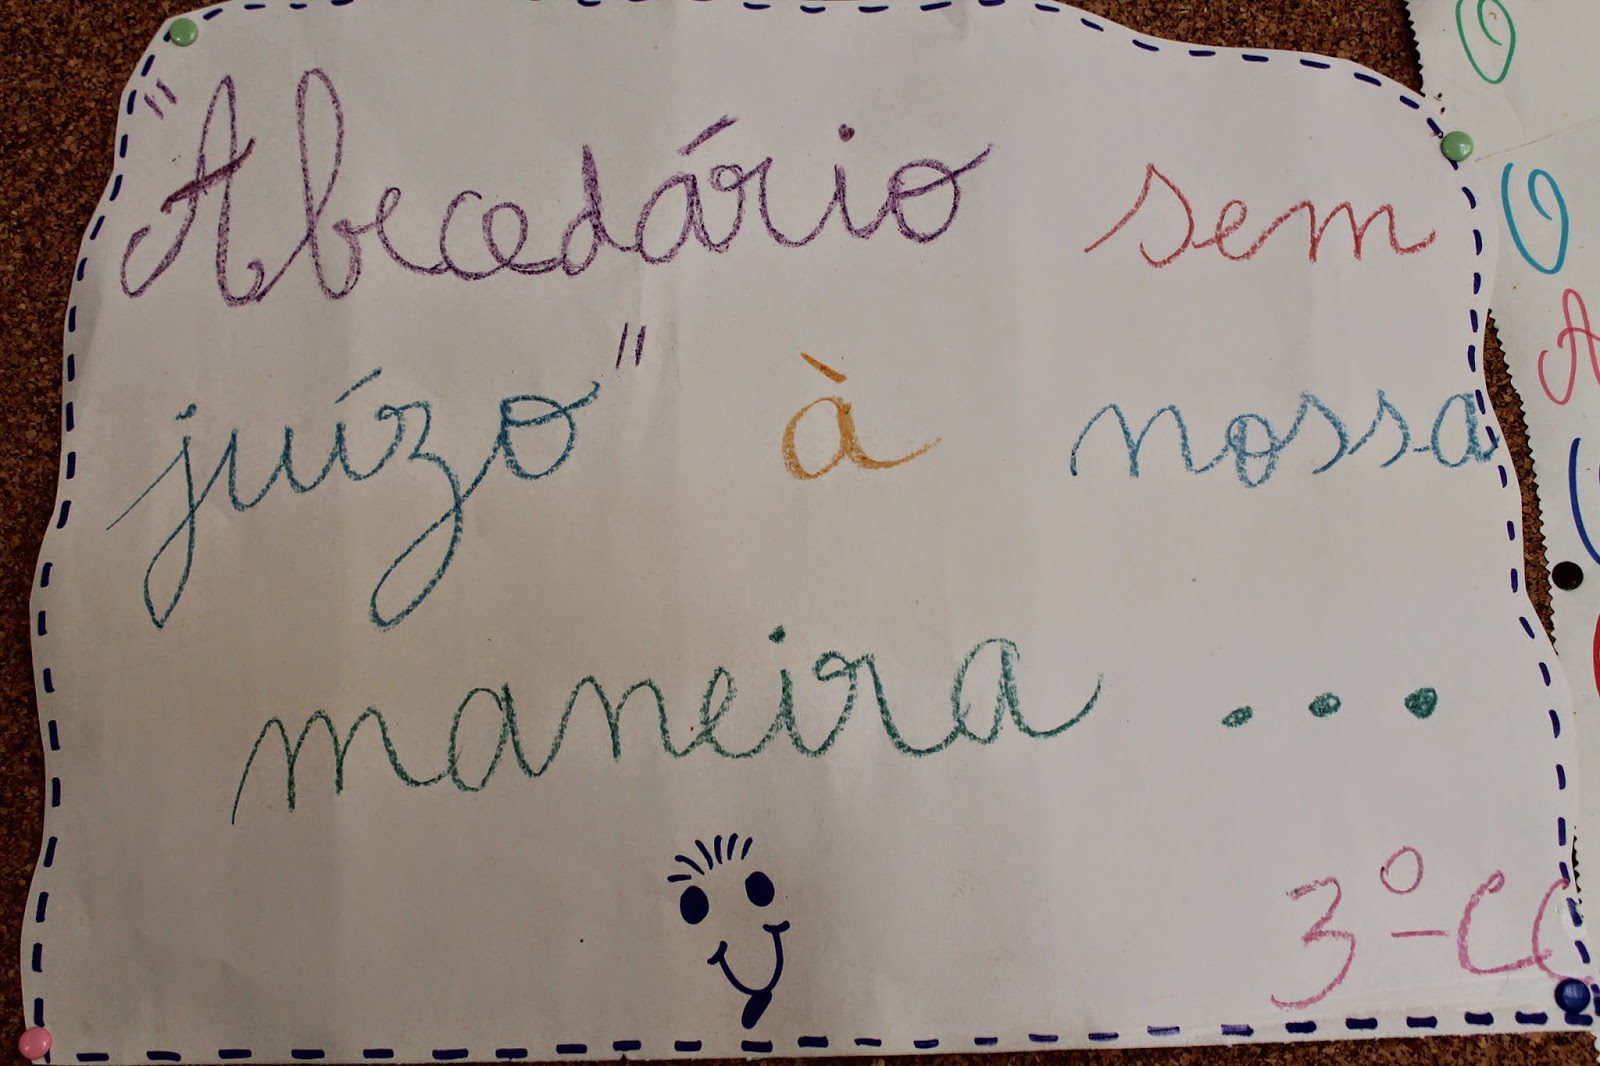 "Abecedário sem
juízo" à nossa
maneira ...
3º-CC
O
O
A